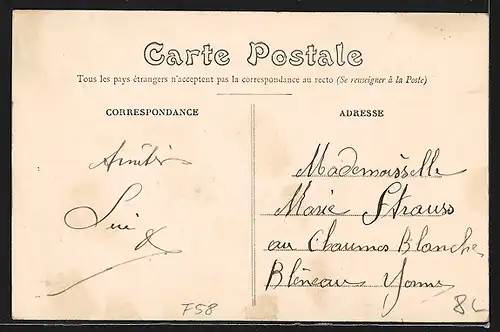 Carte Postale
Tous les pays étrangers n'acceptent pas la correspondance au recto (Se renseigner à la Poste)
CORRESPONDANCE
ADRESSE
Amitiés
Mademoiselle
Marie Strauss
au Chaumes Blanches
Bléneau Yonne
F58
8L